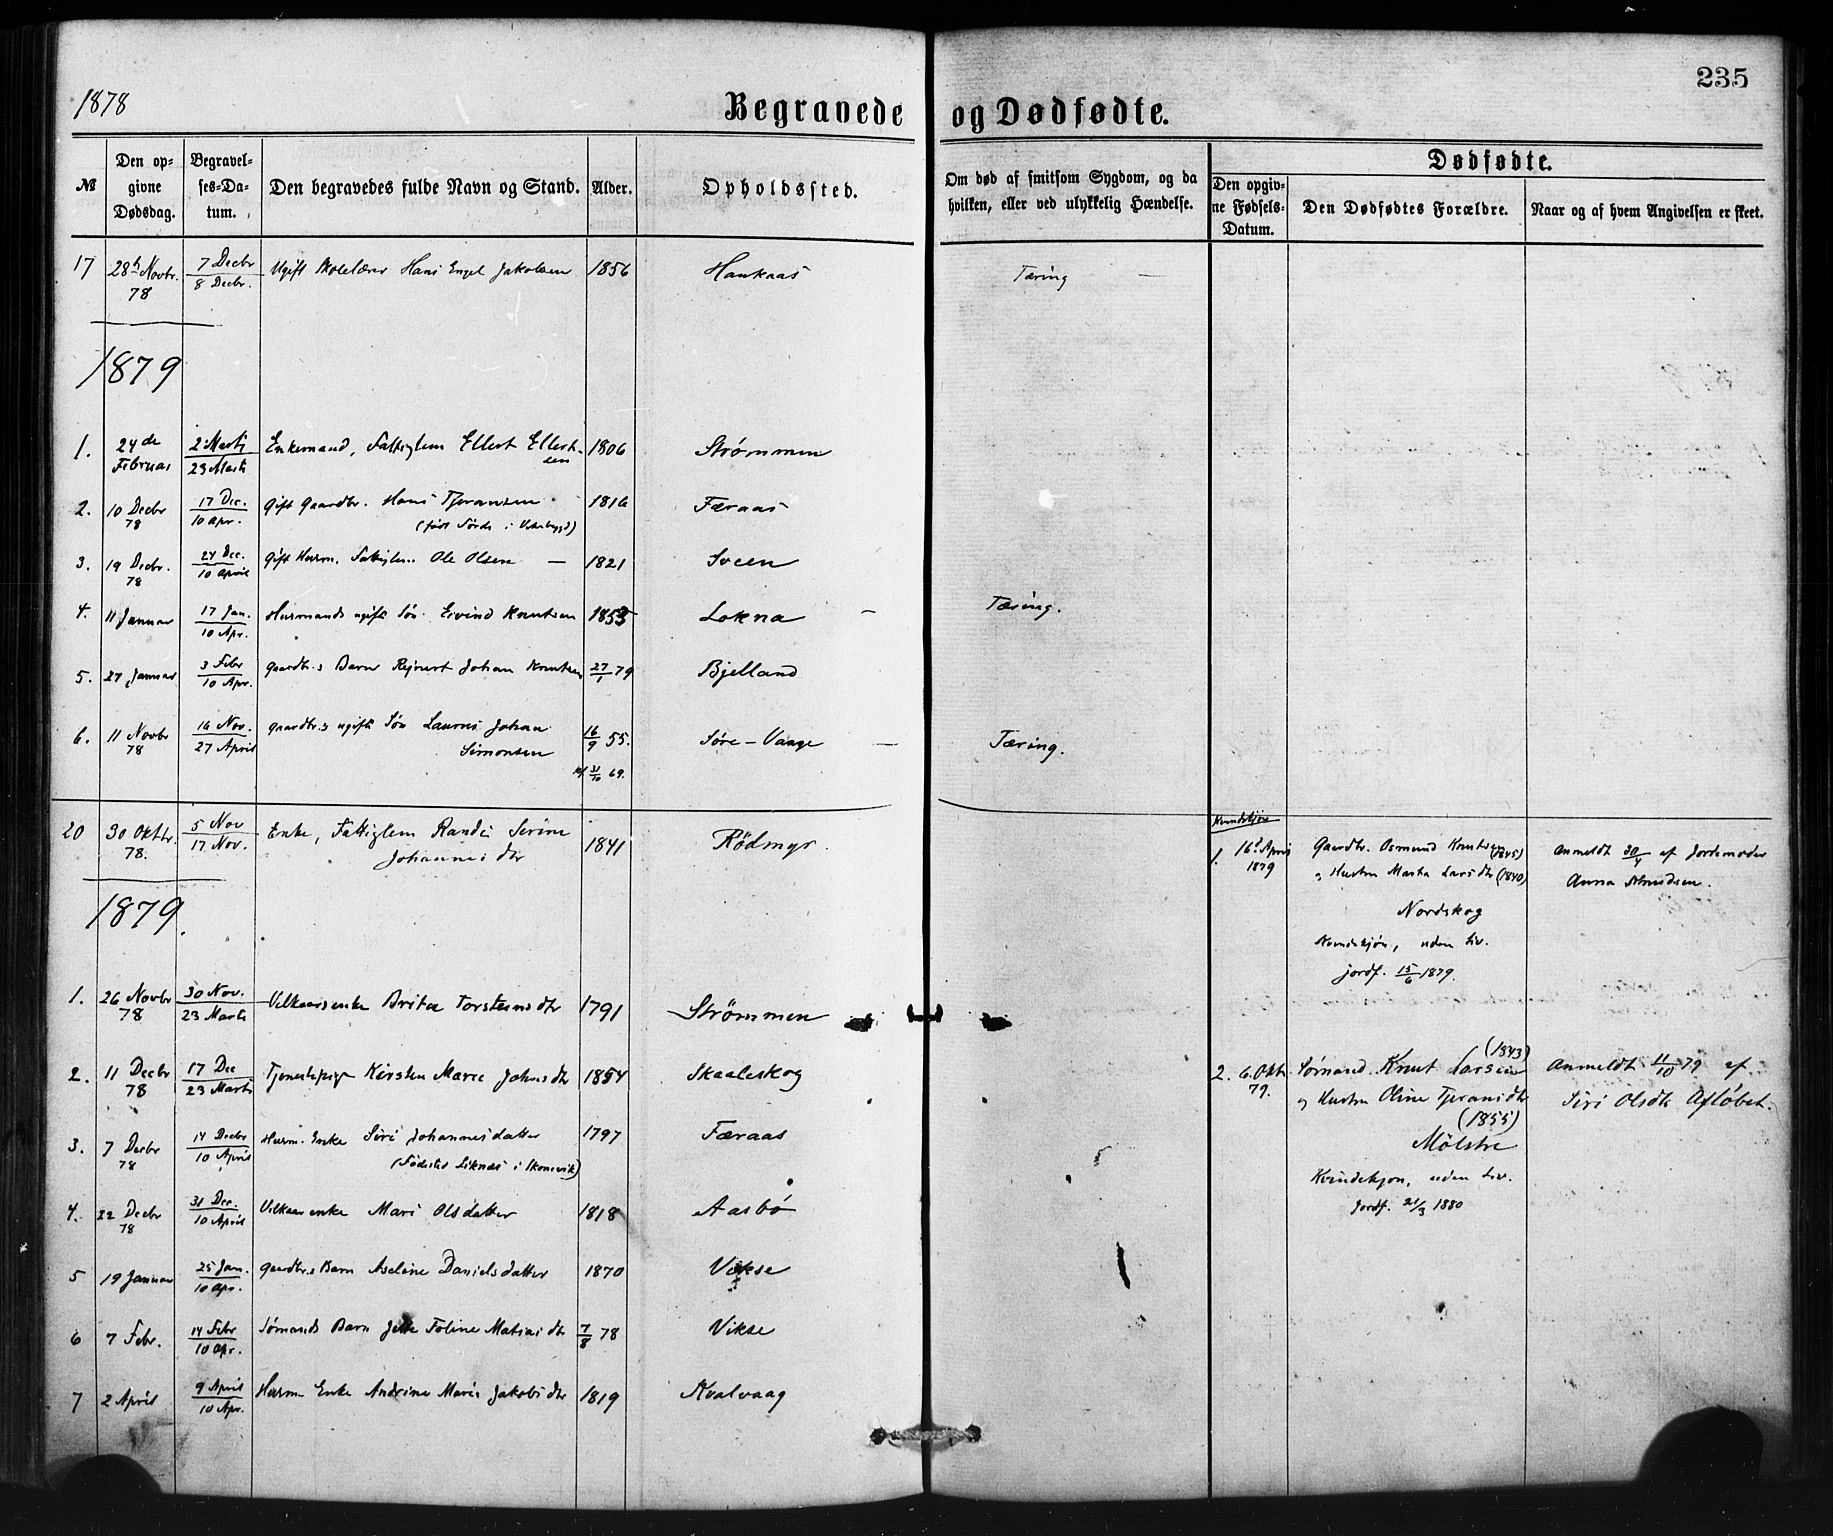 1878
Begravede og Dødfødte.
235
№
Den opgivne Dødsdag.
Begravelses-Datum.
Den begravedes fulde Navn og Stand.
Alder.
Opholdssted.
Om død af smitsom Sygdom, og da hvilken, eller ved ulykkelig Hændelse.
Dødfødte.
Den opgivne Fødsels-Datum.
Den Dødfødtes Forældre.
Naar og af hvem Angivelsen er skeet.
17 28 Novbr. 78 7 Decbr 8 Decbr. Ugift Skolelærer Hans Engel Jakobsen 1856 Haukaas Tæring —
1879
1. 24de Februar 2 Marts 23 Marts Enkemand, Fattiglem Ellert Ellertsen 1806 Strømmen
2. 10 Decbr 78 17 Dec. 10 Apr. Gift Gaardbr. Hans Tjeransen 1816 Færaas
3. 19 Decbr. 78 24 Dec. 10 April Gift Husm. Fattiglem Ole Olsen — 1821 Sveen
4. 11 Januar 17 Jan. 10 Apr. Husmands ugifte Søn Eivind Knutsen 1853 Lokna — Tæring.
5. 27 Januar 3 Febr 10 Apr. Gaardbr.s Barn Rejnert Johan Knutsen 27/1 79 Bjelland
6. 11 Novbr 78 16 Nov. 27 April Gaardbr.s ugifte Søn Laurits Johan Simonsen 16/9 55. 31/10 69. Søre-Vaage — Tæring.
20 30 Oktbr. 78. 5 Nov 17 Nov. Enke, Fattiglem Randi Serine Johannesdtr 1841 Rødmyr.
1879.
1. 26 Novbr 78 30 Nov. 23 Marts Vilkaarsenke Brita Torsteinsdtr 1791 Strømmen
2. 11 Decbr 78 17 Dec 23 Marts Tjenestepige Kirsten Marie Johnsdtr 1854 Skaaleskog
3. 7 Decbr 78 14 Decbr 10 April Husm. Enke Siri Johannesdatter 1797 Færaas
(Fødested Liknæs i Skonevik)
4. 22 Decbr 78 31 Dec. 10 April Vilkaarsenke Mari Olsdatter 1818 Aasbø
5 19 Januar 25 Jan. 10 Apr. Gaardbr.s Barn Aseline Danielsdatter 1870 Vikse
6 7 Febr. 14 Febr 10 Apr. Sømands Barn Jette Toline Matiasdtr 7/8 78 Vikse
7 2 April 9 April 10 Apr. Husm Enke Andrine Marie Jakobsdtr 1819 Kvalvaag
Kvindekjøn
1. 16 April 1879
Gaardbr. Osmund Knutsen (1845)
og Hustru Marta Larsdtr (1840)
Nordskog
Kvindekjøn, uden Liv.
jordf. 15/6 1879.
Anmeldt 30/4 af Jordemoder
Anna Knudsen.
2. 6. Okt 79.
(1843)
Sømand Knut Larsen
og Hustru Oline Tjeransdtr
(1855)
Mølstre
Kvindekjøn, uden Liv.
Jordf. 21/3 1880
Anmeldt 11/10 79 af
Siri Olsdtr Apløbet.